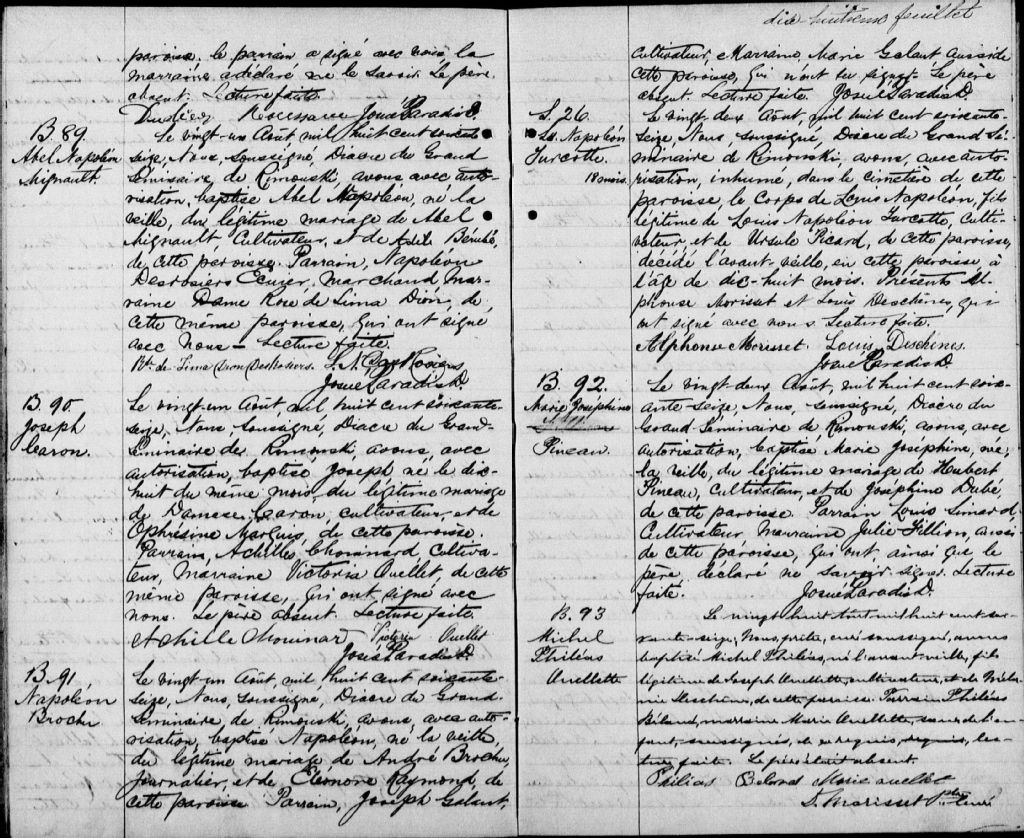 paroisse, le parrain a signé avec nous la
marraine a déclaré ne le savoir. Le père
absent. Lecture faite
Josué Paradis D.
B. 89
Abel Napoléon
Mignault.
Le vingt-un Août, mil huit cent soixante
seize, Nous, soussigné, Diacre du Grand
Séminaire, de Rimouski, avons avec auto-
risation, baptisé Abel Napoléon, né la
veille, du légitime mariage de Abel
Mignault Cultivateur, et de Adèle Bérubé,
de cette paroisse. Parrain, Napoléon
Desrosiers Ecuier, marchand, mar-
raine Dame Rose de Lima Dion, de
cette même paroisse, qui ont signé
avec nous - Lecture faite.
Rse de Lima Dion Desrosiers. L. N. DesRosiers
Josué Paradis D.
B. 90.
Joseph
Caron.
Le vingt-un Août, mil huit cent soixante-
seize, Nous soussigné, Diacre du Grand-
Séminaire de Rimouski, avons, avec
autorisation, baptisé Joseph né le dix-
huit du même mois, du légitime mariage
de Damase Caron, cultivateur, et de
Ophrésine Marquis, de cette paroisse.
Parrain, Achilles Chouinard Cultiva-
teur, Marraine Victoria Ouellet, de cette
même paroisse, qui ont signé avec
nous. Le père absent. Lecture faite.
Achille Chouinar Victoria Ouellet
Josué Paradis D.
B. 91
Napoléon
Brochu
Le vingt-un Août, mil huit cent soixante
seize, Nous, soussigné, Diacre du Grand
Séminaire de Rimouski, avons, avec auto-
risation, baptisé Napoléon, né la veille
du légitime mariage de André Brochu,
Journalier, et de Eléonore Raymond, de
cette paroisse Parrain, Joseph Galant,
dix-huitième feuillet
Cultivateur, Marraine, Marie Galant aussi de
cette paroisse, qui n'ont su signer. Le père
absent. Lecture faite. Josué Paradis D.
S. 26.
Ls. Napoléon
Turcotte.
18 mois.
Le vingt-deux Août, mil huit cent soixante-
seize, Nous soussigné, Diacre du Grand Sé-
minaire de Rimouski, avons, avec auto-
risation, inhumé, dans le cimetière de cette
paroisse, le Corps de Louis Napoléon, fils
légitime de Louis Napoléon Turcotte, Culti-
vateur, et de Ursule Picard, de cette paroisse,
décidé l'avant veille, en cette paroisse à
l'âge de dix-huit mois. Présents Al-
phonse Morisset et Louis Deschênes, qui
ont signé avec nous Lecture faite.
Alphonse Morisset Louis Deschênes.
Josué Paradis D.
B. 92.
Marie Joséphine
Pineau.
Le vingt deux Août, mil huit cent soix-
ante-seize, Nous, soussigné, Diacre du
Grand Séminaire de Rimouski, avons, avec
autorisation, baptisé Marie Joséphine, née,
la veille, du légitime mariage de Hubert
Pineau, Cultivateur, et de Joséphine Dubé,
de cette paroisse. Parrain Louis Simard
Cultivateur, Marraine Julie Fillion, aussi
de cette paroisse, qui ont ainsi que le
père, déclaré ne savoir signer. Lecture
faite. Josué Paradis D.
B. 93
Michel
Philéas
Ouellette
Le vingt huit Août mil huit cent soi-
xante-seize, Nous, ptre, curé soussigné, avons
baptisé Michel Philéas, né l'avant veille, fils
légitime de Joseph Ouellette, cultivateur, et de Méla-
nie Deschênes, de cette paroisse. Parrain Philéas
Béland, marraine Marie Ouellette, soeur de l'en-
fant, soussignés, de ce requis, lec-
ture faite. Le père était absent.
Philias Beland Marie ouellet
D. Morisset Ptre Curé